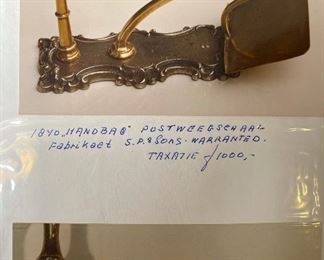 1840 „HANDBAG" POSTWEEGSCHAAL-
Fabrikaet S.P.& Sons-WARRANTED.
TAXATIE ƒ1000,-